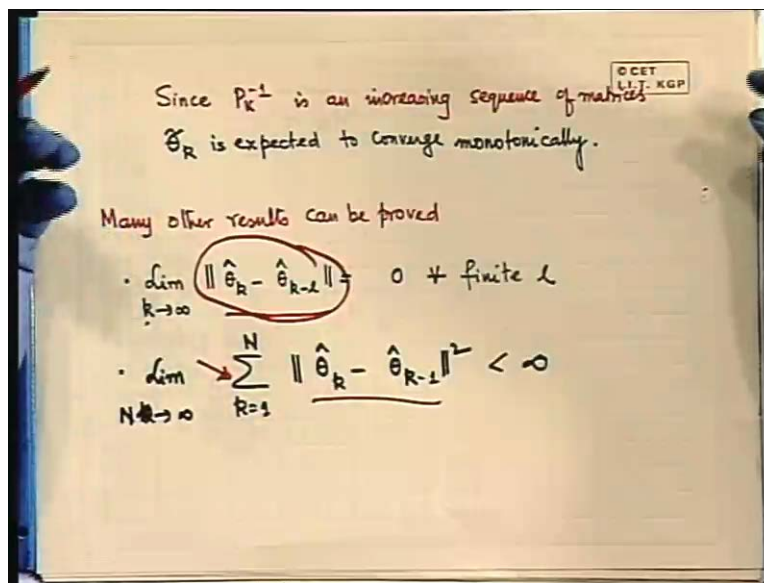 © CET
I.I.T. KGP
Since P_K^{-1} is an increasing sequence of matrices
θ̃_k is expected to converge monotonically.
Many other results can be proved
· Lim_{k→∞} ‖ θ̂_k - θ̂_{k-l} ‖ = 0 ∀ finite l
· Lim_{N→∞} ∑_{k=1}^{N} ‖ θ̂_k - θ̂_{k-1} ‖² < ∞